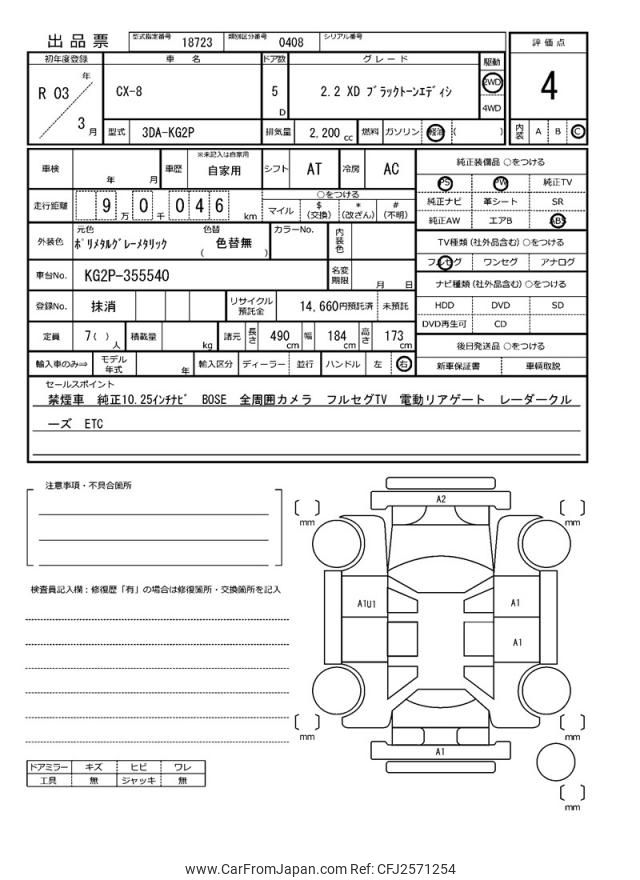 出品票 型式指定番号 18723 類別区分番号 0408 シリアル番号
評価点
4
内装 A B C
初年度登録 車名 ドア数 グレード 駆動
R 03 年 3 月 CX-8 5 D 2.2 XD ﾌﾞﾗｯｸﾄｰﾝｴﾃﾞｨｼ 2WD 4WD
型式 3DA-KG2P 排気量 2,200 cc 燃料 ガソリン 軽油 ( )
車検 年 月 車歴 ※未記入は自家用 自家用 シフト AT 冷房 AC
走行距離 9 万 0 千 0 4 6 km
○をつける
マイル $ (交換) * (改ざん) # (不明)
外装色 元色 ﾎﾟﾘﾒﾀﾙｸﾞﾚｰﾒﾀﾘｯｸ 色替 ( 色替無 ) カラーNo. 内装色
車台No. KG2P-355540 名変期限 月 日
登録No. 抹消 リサイクル預託金 14,660円預託済 未預託
定員 7( ) 人 積載量 kg 諸元 長さ 490 cm 幅 184 cm 高さ 173 cm
輸入車のみ⇒ モデル年式 年 輸入区分 ディーラー 並行 ハンドル 左 右
純正装備品 ○をつける
PS PW 純正TV
純正ナビ 革シート SR
純正AW エアB ABS
TV種類 (社外品含む) ○をつける
フルセグ ワンセグ アナログ
ナビ種類 (社外品含む) ○をつける
HDD DVD SD
DVD再生可 CD
後日発送品 ○をつける
新車保証書 車輌取説
セールスポイント
禁煙車 純正10.25ｲﾝﾁﾅﾋﾞ BOSE 全周囲カメラ フルセグTV 電動リアゲート レーダークル
ーズ ETC
注意事項・不具合箇所
検査員記入欄：修復歴「有」の場合は修復箇所・交換箇所を記入
ドアミラー キズ ヒビ ワレ
工具 無 ジャッキ 無
A2
mm mm
A1U1 A1
A1
mm mm
A1
mm
www.CarFromJapan.com Ref: CFJ2571254